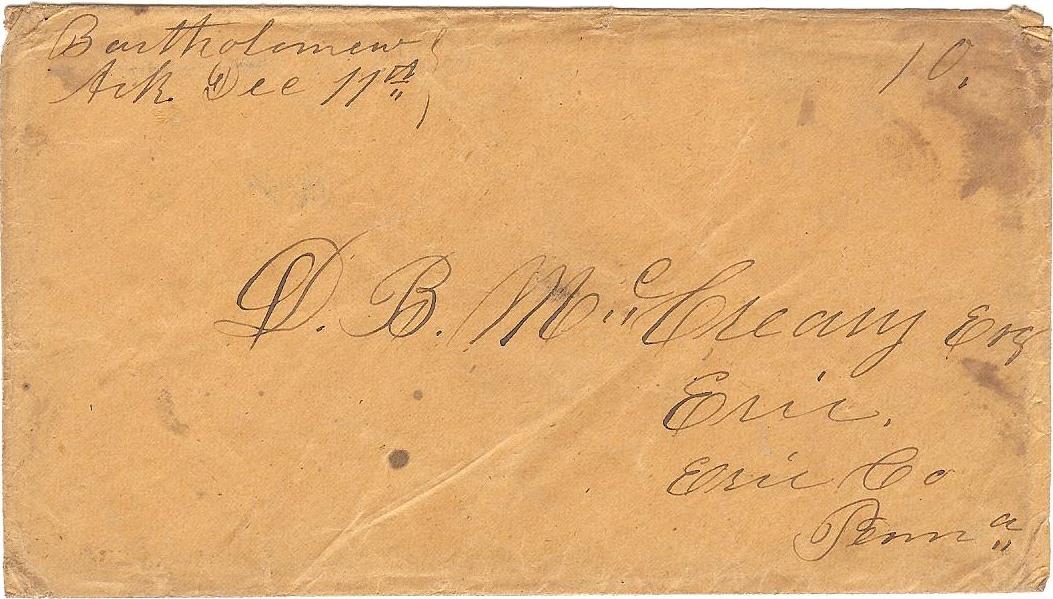 Bartholomew
Ark. Dec 11th
10.
D. B. McCreary Esq
Erie.
Erie Co
Penna